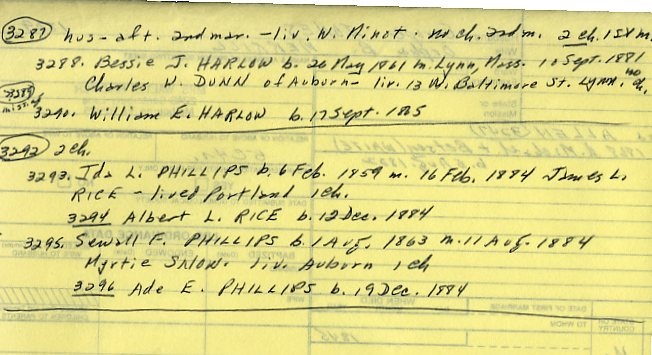 3287 hus - aft. 2nd mar. - liv. W. Minot - no ch. 2nd m. 2 ch. 1st m.
3288. Bessie J. HARLOW b. 26 May 1861 m. Lynn, Mass. 10 Sept. 1881
Charles W. DUNN of Auburn - liv. 13 W. Baltimore St. Lynn. no ch.
3289 missing
3290. William E. HARLOW b. 17 Sept. 1865
3292 2 ch.
3293. Ida L. PHILLIPS b. 6 Feb. 1859 m. 16 Feb. 1884 James L.
RICE - lived Portland 1 ch.
3294 Albert L. RICE b. 12 Dec. 1884
3295. Sewall F. PHILLIPS b. 1 Aug. 1863 m. 11 Aug. 1884
Myrtie SNOW. liv. Auburn 1 ch
3296 Ade E. PHILLIPS b. 19 Dec. 1884